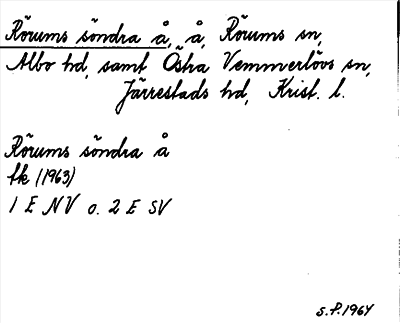 Rörums söndra å, å, Rörums sn,
Albo hd, samt Östra Vemmerlövs sn,
Järrestads hd, Krist. l.
Rörums söndra å
tk (1963)
1 E NV o. 2 E SV
S.P. 1964